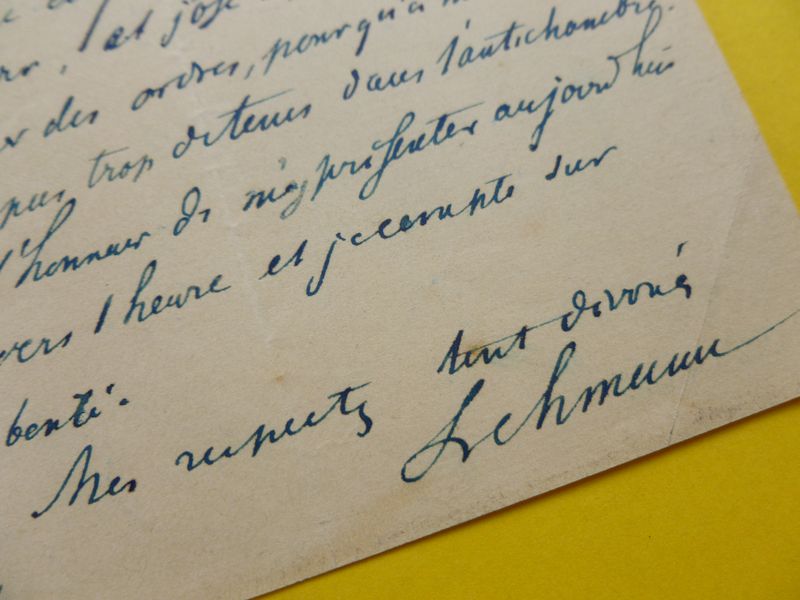 et j'ose
des ordres, pourqu'on
pas trop détenus dans l'antichambre.
l'honneur de m'y présenter aujourd'hui
vers 1 heure et je compte sur
bonté.
Mes respects tout dévoués
Lehmann